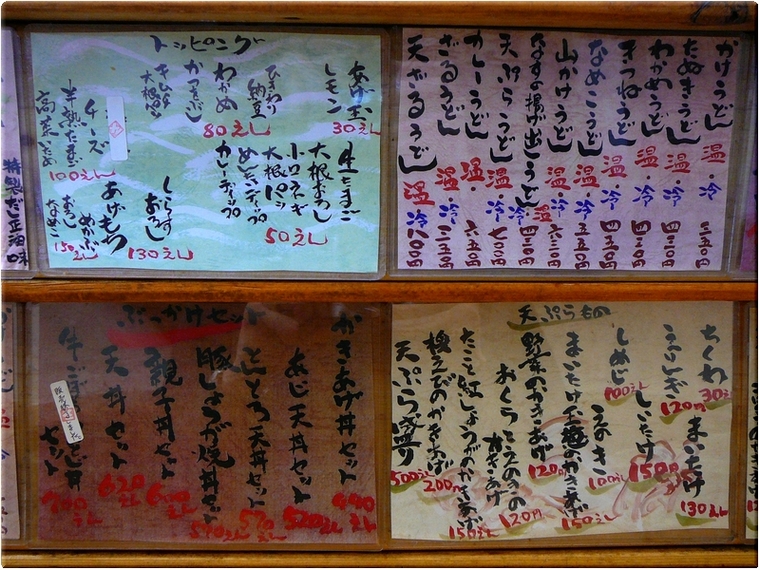 トッピング
あげ玉
レモン
30えん
生たまご
大根おろし
小口ネギ
大根パラ
50えん
ひきわり
納豆
めんたいディップ
カレーディップ
わかめ
かつおぶし
80えん
キムチ
大根
しらす
おろし
130えん
チーズ
半熟たまご
高菜いため
100えん
あげもち
めかぶ
おろし
なめこ
150えん
特製だし正油味
かけうどん 温・冷 三五〇円
たぬきうどん 温・冷
わかめうどん 温・冷 四三〇円
きつねうどん 温・冷
なめこうどん 温・冷
山かけうどん 温・冷 五三〇円
なすの揚げ出しうどん 冷 温 六三〇円
天ぷらうどん 温・冷 七〇〇円
カレーうどん 温 六五〇円
ざるうどん 冷
天ざるうどん 温・冷 八〇〇円
ぶっかけセット
かきあげ丼セット 490えん
あじ天丼セット 520えん
とろろ天丼セット 570えん
豚しょうが焼丼セット 590えん
親子丼セット 600えん
天丼セット 620えん
セット 700えん
天ぷらもの
ちくわ 30えん
うらしぎ 120円
まいたけ 130えん
しめじ 100えん
しいたけ 150円
えのき 100えん
まいたけのかきあげ 150えん
野菜のかきあげ 120円
おくらとえのきの
かきあげ 120円
たこと紅しょうがのかきあげ 150えん
桜えびのかきあげ 200円
天ぷら盛り 500えん